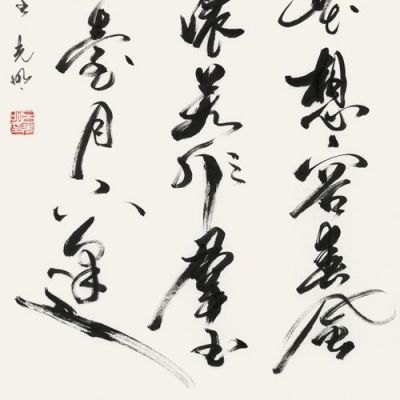 花想容春風
濃若非群玉
臺月下逢
光明